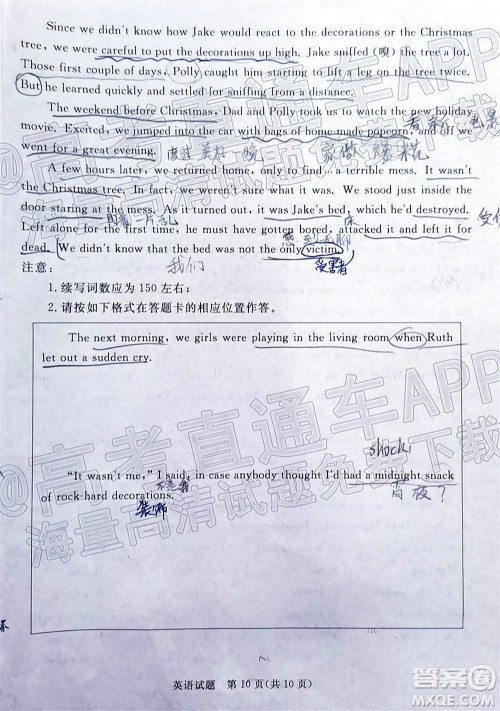 Since we didn't know how Jake would react to the decorations or the Christmas
tree, we were careful to put the decorations up high. Jake sniffed (嗅) the tree a lot.
Those first couple of days, Polly caught him starting to lift a leg on the tree twice.
But he learned quickly and settled for sniffing from a distance.
The weekend before Christmas, Dad and Polly took us to watch the new holiday
movie. Excited, we jumped into the car with bags of home made popcorn, and off we
went for a great evening.
家做 爆米花
A few hours later, we returned home, only to find a terrible mess. It wasn't
the Christmas tree. In fact, we weren't sure what it was. We stood just inside the
door staring at the mess. As it turned out, it was Jake's bed, which he'd destroyed.
Left alone for the first time, he must have gotten bored, attacked it and left it for
感到无聊
dead. We didn't know that the bed was not the only victim.
我们
受害者
注意：
1. 续写词数应为 150 左右；
2. 请按如下格式在答题卡的相应位置作答。
The next morning, we girls were playing in the living room when Ruth
let out a sudden cry.
shock
"It wasn't me," I said, in case anybody thought I'd had a midnight snack
of rock-hard decorations.
装饰
英语试题 第 10 页(共 10 页)
@高考直通车APP
海量高清试题免费下载
@高考直通车APP
海量高清试题免费下载
答案圈
MXQE.COM